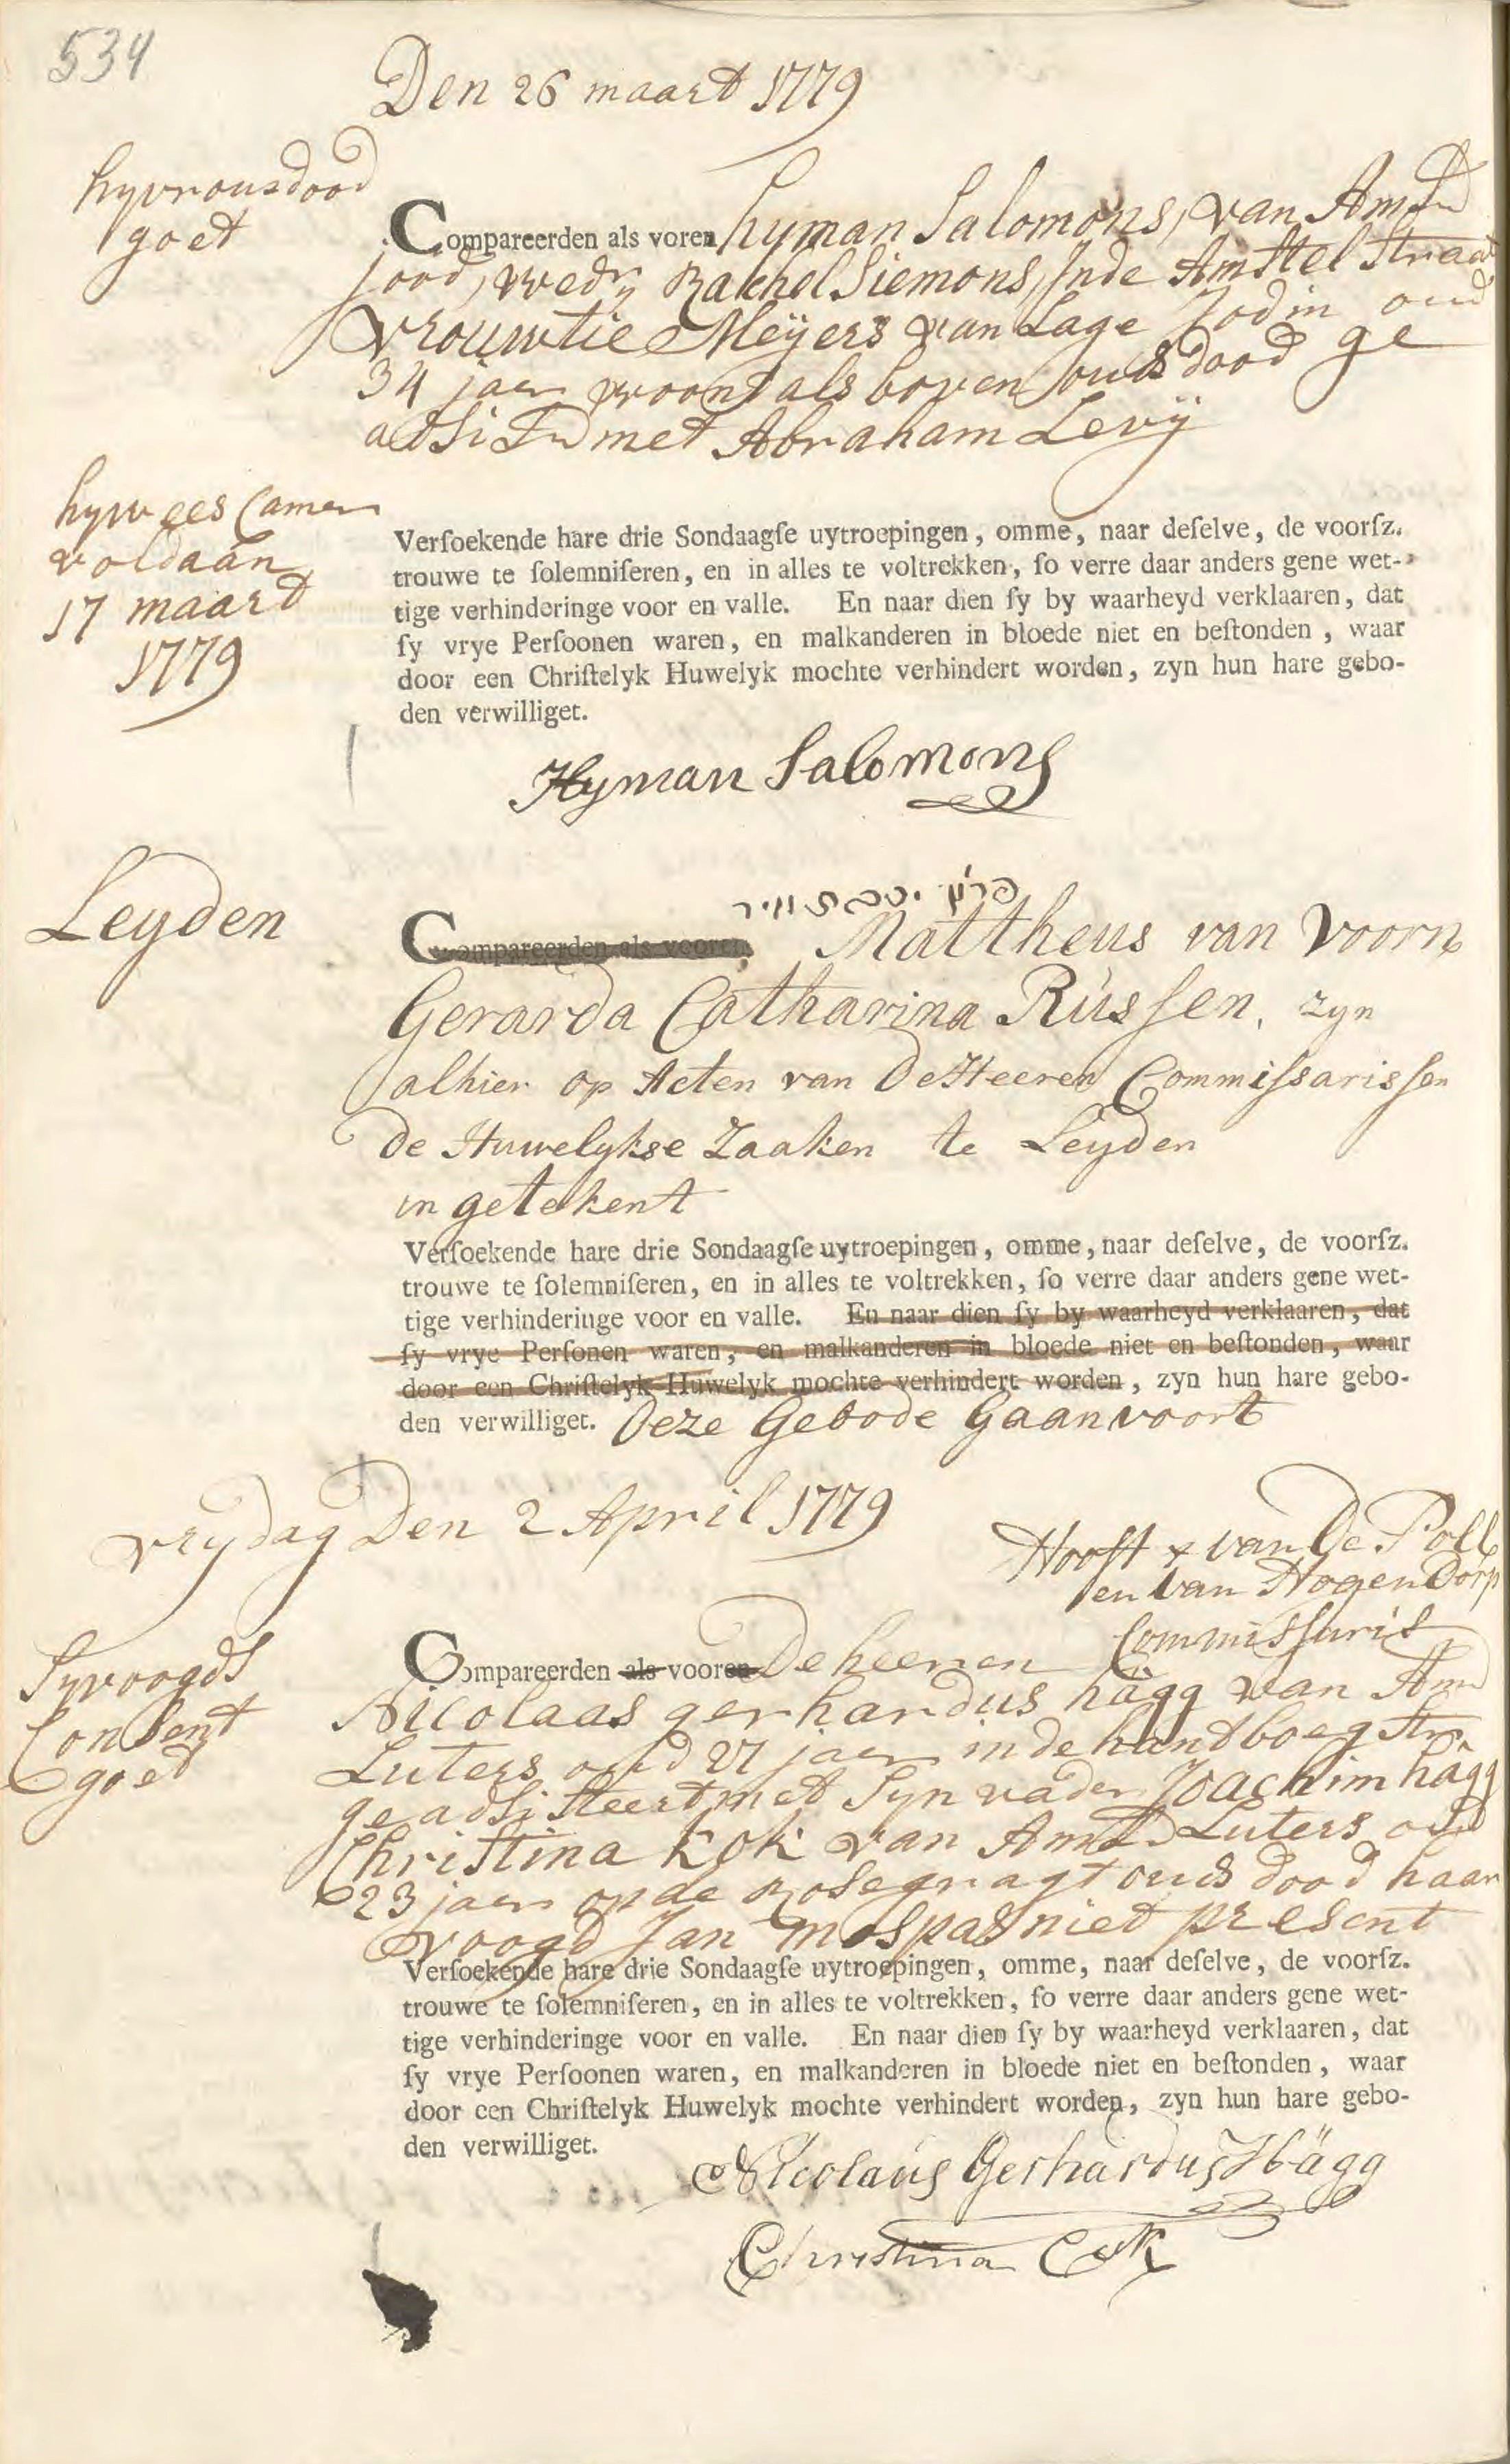 534
Den 26 maart 1779
hyvrousdood
goet
Compareerden als voren hyman Salomons, van Amstd
jood, wedr Rachel Siemons, Inde Amstel Straat
vrouwtie Meÿers van Lage Jodin oud
34 jaer woont als boven ouds dood ge
adsistd met Abraham Levÿ
hyweescamer
voldaan
17 maart
1779
Verſoekende hare drie Sondaagſe uytroepingen, omme, naar deſelve, de voorſz.
trouwe te ſolemniſeren, en in alles te voltrekken, ſo verre daar anders gene wet-
tige verhinderinge voor en valle. En naar dien ſy by waarheyd verklaaren, dat
ſy vrye Perſoonen waren, en malkanderen in bloede niet en beſtonden, waar
door een Chriſtelyk Huwelyk mochte verhindert worden, zyn hun hare gebo-
den verwilliget.
Hyman Salomons
Leyden
Compareerden als vooren Mattheus van Voorn
Gerarda Catharina Rússen, zyn
alhier op Acten van De Heeren Commissarissen
de Huwelykse Zaaken te Leyden
in getekent
Verſoekende hare drie Sondaagſe uytroepingen, omme, naar deſelve, de voorſz.
trouwe te ſolemniſeren, en in alles te voltrekken, ſo verre daar anders gene wet-
tige verhinderinge voor en valle. En naar dien ſy by waarheyd verklaaren, dat
ſy vrye Perſonen waren, en malkanderen in bloede niet en beſtonden, waar
door een Chriſtelyk Huwelyk mochte verhindert worden, zyn hun hare gebo-
den verwilliget. Deze Gebode Gaan voort
vrydag Den 2 April 1779
Hooft x van De Poll
en van HogenDorp
Commissaris
Syvoogds
Consent
goet
Compareerden als vooren De heeren
Nicolaas gerhardus hägg van Amd
Luters oud 27 jaer in de handboegstr
geadsisteert met Syn vader Joachim hägg
Christina Kok van Amsd Luters oud
23 jaer op de Rosegragt ouds dood haar
voogd Jan Mospas niet present
Verſoekende hare drie Sondaagſe uytroepingen, omme, naar deſelve, de voorſz.
trouwe te ſolemniſeren, en in alles te voltrekken, ſo verre daar anders gene wet-
tige verhinderinge voor en valle. En naar dien ſy by waarheyd verklaaren, dat
ſy vrye Perſoonen waren, en malkanderen in bloede niet en beſtonden, waar
door een Chriſtelyk Huwelyk mochte verhindert worden, zyn hun hare gebo-
den verwilliget.
Nicolaús Gerhardus Hägg
Christina Cok